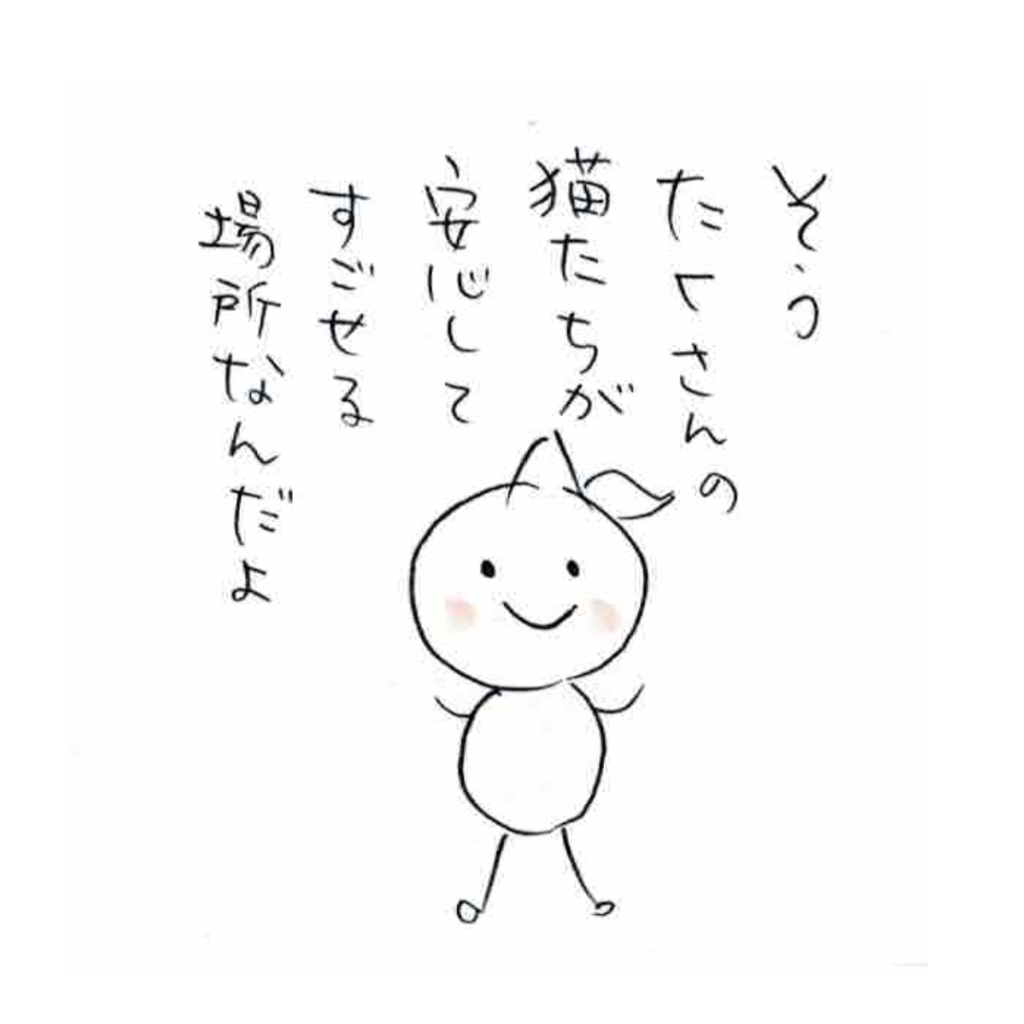 そう
たくさんの
猫たちが
安心して
すごせる
場所なんだよ